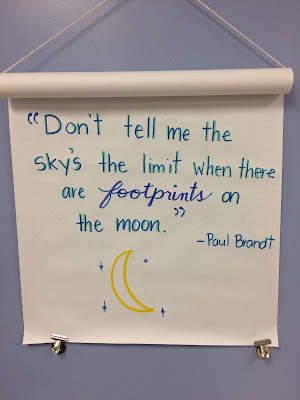 “Don't tell me the
sky's the limit when there
are footprints on
the moon.”
-Paul Brandt